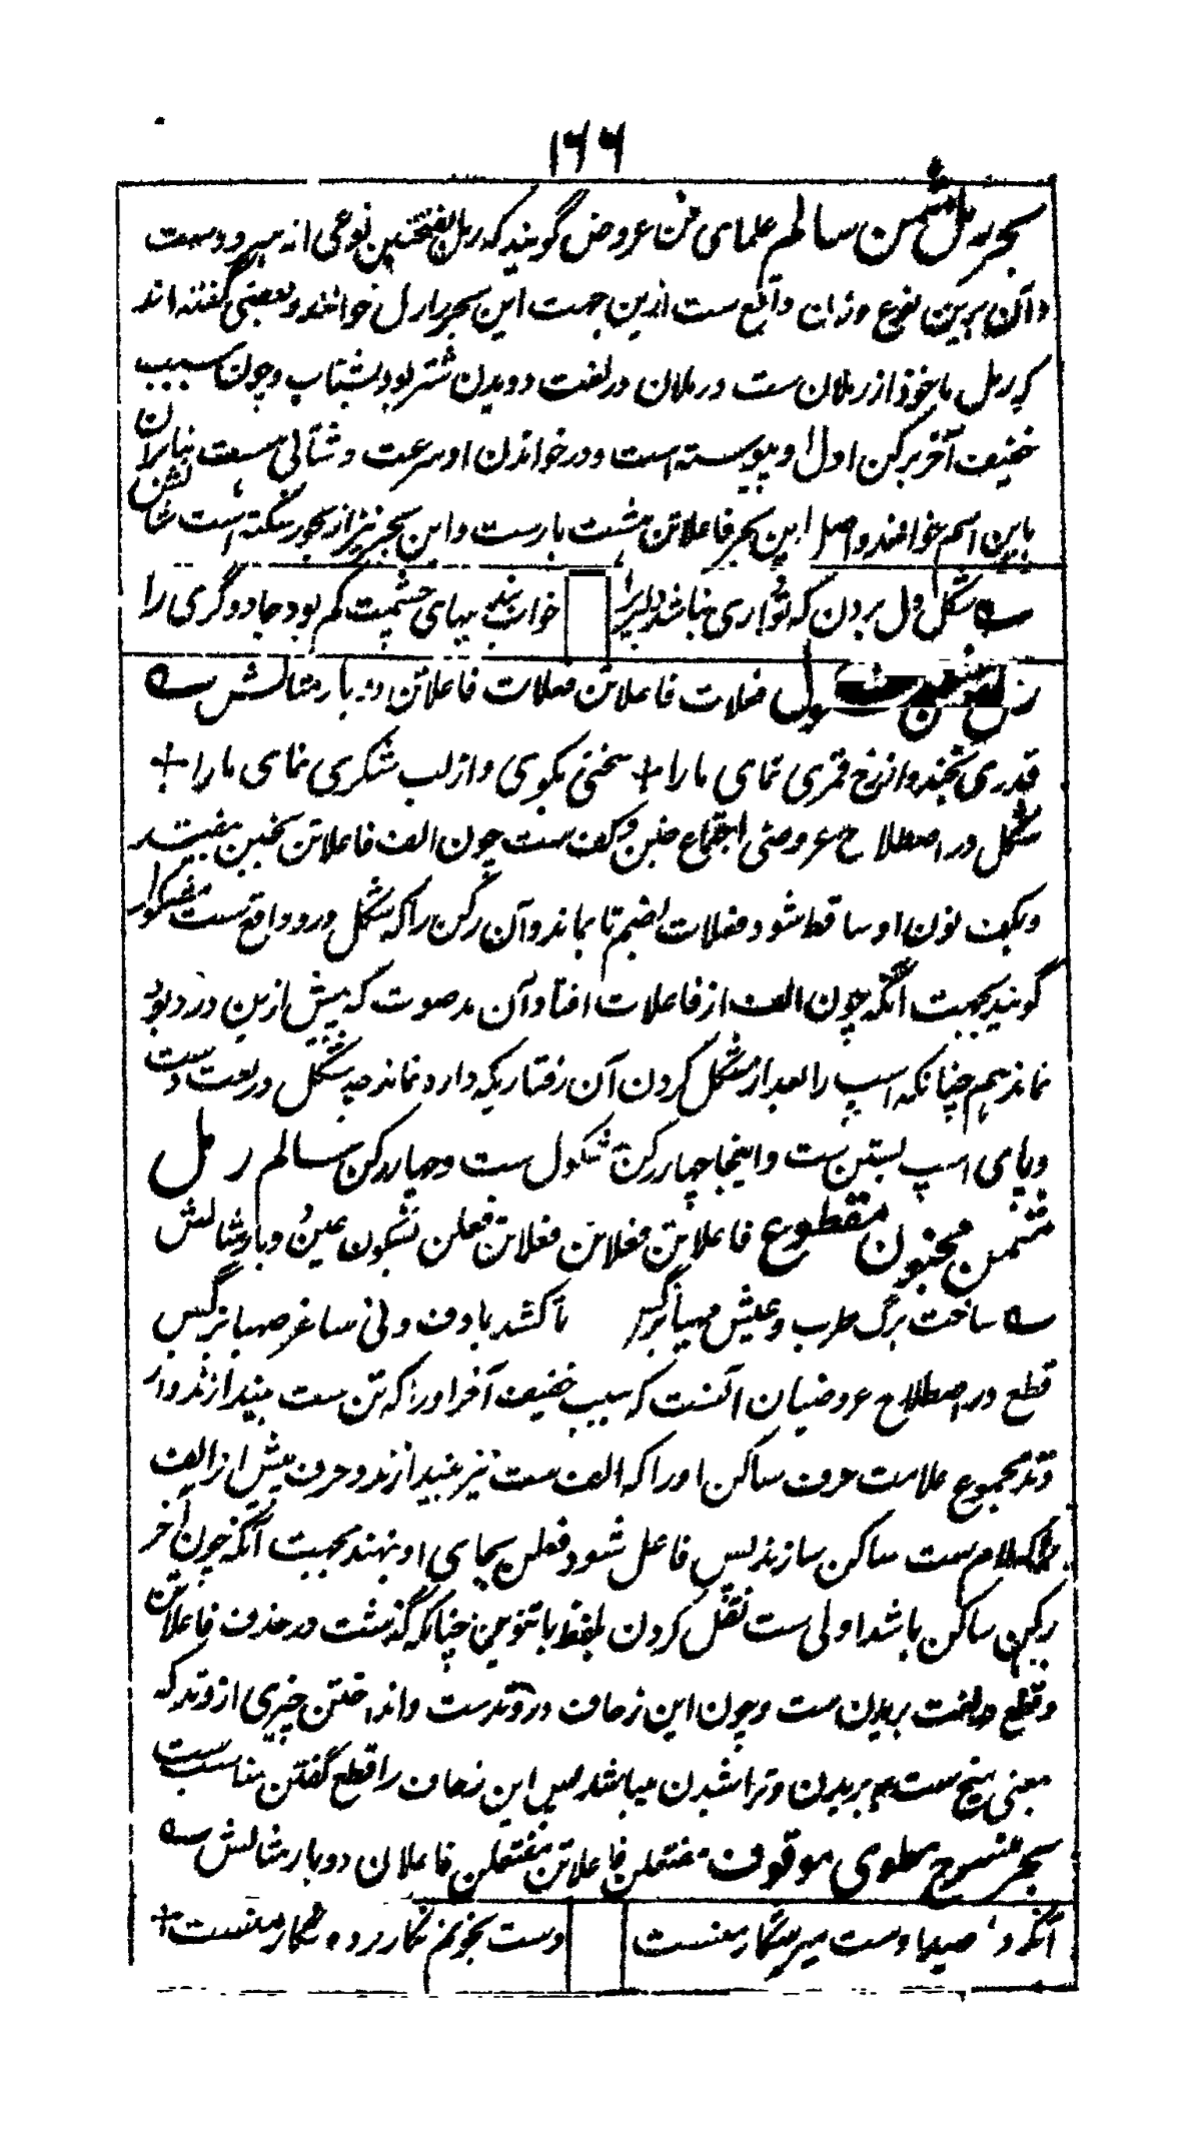 ۱۶۶
بحر رمل مثمن سالم علمای فن عروض گویند که رمل بفتحتین نوعی از سرودست
و آن برین نوع وزن واقع ست ازین جهت این بحر را رمل خوانند و بعضی گفته اند
که رمل ماخوذ از رملان ست و رملان در لغت دویدن شتر بود بشتاب و چون سبب
خفیف آخر برکن اول او پیوسته است و در خواندن او سرعت و شتابی هست بنابران
باین اسم خوانند و اصل این بحر فاعلاتن هشت بارست و این بحر نیز از بحور سته است مثالش
شکل دل بردن که تو داری نباشد دلبری را خواب بندیهای چشمت کم بود جادوگری را
رمل مثمن مشکول فعلات فاعلاتن فعلات فاعلاتن دوبار مثالش
قدری بخند و از رخ قمری نمای ما را + سخنی بگوی و از لب شکری نمای ما را +
شکل در اصطلاح عروضی اجتماع خبن و کف ست چون الف فاعلاتن بخبن بیفتد
و بکف نون او ساقط شود فعلات بضم تا بماند و آن رکن را که شکل درو واقع ست مشکول
گویند بجهت آنکه چون الف از فاعلات افتاد آن مد صوت که پیش ازین درو بود
نماند همچنانکه اسپ را بعد از شکل کردن آن رفتاریکه دارد نماند چه شکل در لغت دست
و پای اسپ بستن ست و اینجا چهار رکن مشکول ست و چهار رکن سالم رمل
مثمن مخبون مقطوع فاعلاتن فعلاتن فعلاتن فعلن بسکون عین دوبار مثالش
ساخت برگ طرب و عیش مهیا نرگس تا کشد با دف و نی ساغر صهبا نرگس
قطع در اصطلاح عروضیان آنست که سبب خفیف آخر او را که تن ست بیندازند و از
وتد مجموع علاست حرف ساکن او را که الف ست نیز بیندازند و حرف پیش از الف
که لام ست ساکن سازند پس فاعل شود فعلن بجای او نهند بجهت آنکه چون آخر
رکن ساکن باشد اولی ست نقل کردن بلفظ با تنوین چنانکه گذشت در حذف فاعلاتن
و قطع در لغت بریدن ست و چون این زحاف در وتدست و انداختن چیزی از وتد که
بمعنی میخ ست بریدن و تراشیدن میباشد پس این زحاف را قطع گفتن مناسبست
بحر منسرح مطوی موقوف مفتعلن فاعلاتن مفتعلن فاعلان دوبار مثالش
آنکه دل صید اوست میر شکار منست دست بخونم نگار برده نگار منست +